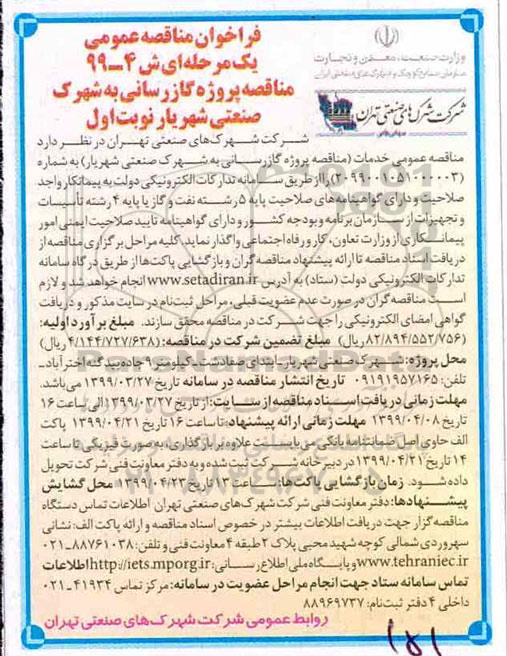 فراخوان مناقصه عمومی
یک مرحله‌ای ش ۴ـ۹۹
مناقصه پروژه گازرسانی به شهرک
صنعتی شهریار نوبت اول
وزارت صنعت، معدن و تجارت
سازمان صنایع کوچک و شهرک‌های صنعتی ایران
شرکت شهرک‌های صنعتی تهران
شرکت شهرک‌های صنعتی تهران در نظر دارد
مناقصه عمومی خدمات (مناقصه پروژه گازرسانی به شهرک صنعتی شهریار) به شماره
(۲۰۹۹۰۰۱۰۵۱۰۰۰۰۰۳) را از طریق سامانه تدارکات الکترونیکی دولت به پیمانکار واجد
صلاحیت و دارای گواهینامه‌های صلاحیت پایه ۵ رشته نفت و گاز یا پایه ۴ رشته تأسیسات
و تجهیزات از سازمان برنامه و بودجه کشور و دارای گواهینامه تایید صلاحیت ایمنی امور
پیمانکاری از وزارت تعاون، کار و رفاه اجتماعی واگذار نماید. کلیه مراحل برگزاری مناقصه از
دریافت اسناد مناقصه تا ارائه پیشنهاد مناقصه‌گران و بازگشایی پاکت‌ها از طریق درگاه سامانه
تدارکات الکترونیکی دولت (ستاد) به آدرس www.setadiran.ir انجام خواهد شد و لازم
است مناقصه‌گران در صورت عدم عضویت قبلی، مراحل ثبت‌نام در سایت مذکور و دریافت
گواهی امضای الکترونیکی را جهت شرکت در مناقصه محقق سازند. مبلغ برآورد اولیه:
(۸۲/۸۹۴/۵۵۲/۷۵۶ریال) مبلغ تضمین شرکت در مناقصه: (۴/۱۴۴/۷۲۷/۶۳۸ریال)
محل پروژه: شهرک صنعتی شهریار ـ ابتدای صفادشت ـ کیلومتر ۹ جاده بیدگنه اخترآباد ـ
تلفن: ۰۹۱۹۱۹۵۷۱۶۵ تاریخ انتشار مناقصه در سامانه تاریخ ۱۳۹۹/۰۳/۲۷ می‌باشد.
مهلت زمانی دریافت اسناد مناقصه از سایت: از تاریخ ۱۳۹۹/۰۳/۲۷ الی ساعت ۱۶
تاریخ ۱۳۹۹/۰۴/۰۸ مهلت زمانی ارائه پیشنهاد: تا ساعت ۱۶ تاریخ ۱۳۹۹/۰۴/۲۱ پاکت
الف حاوی اصل ضمانتنامه بانکی می‌بایست علاوه بر بارگذاری، به صورت فیزیکی تا ساعت
۱۴ تاریخ ۱۳۹۹/۰۴/۲۱ در دبیرخانه شرکت ثبت شده و به دفتر معاونت فنی شرکت تحویل
داده شود. زمان بازگشایی پاکت‌ها: ساعت ۱۳ تاریخ ۱۳۹۹/۰۴/۲۳ محل گشایش
پیشنهادها: دفتر معاونت فنی شرکت شهرک‌های صنعتی تهران اطلاعات تماس دستگاه
مناقصه‌گزار جهت دریافت اطلاعات بیشتر در خصوص اسناد مناقصه و ارائه پاکت الف: نشانی
سهروردی شمالی کوچه شهید محبی پلاک ۲ طبقه ۴ معاونت فنی و تلفن: ۸۸۷۶۱۰۳۸-۰۲۱
www.tehraniec.ir و پایگاه ملی اطلاع رسانی: http://iets.mporg.ir اطلاعات
تماس سامانه ستاد جهت انجام مراحل عضویت در سامانه: مرکز تماس ۴۱۹۳۴-۰۲۱
داخلی ۴ دفتر ثبت‌نام: ۸۸۹۶۹۷۳۷
روابط عمومی شرکت شهرک‌های صنعتی تهران